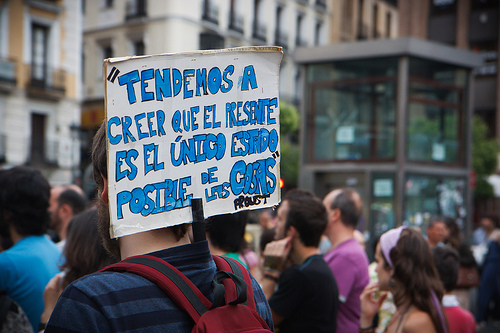 "TENDEMOS A
CREER QUE EL PRESENTE
ES EL ÚNICO ESTADO
POSIBLE DE LAS COSAS"
PROUST